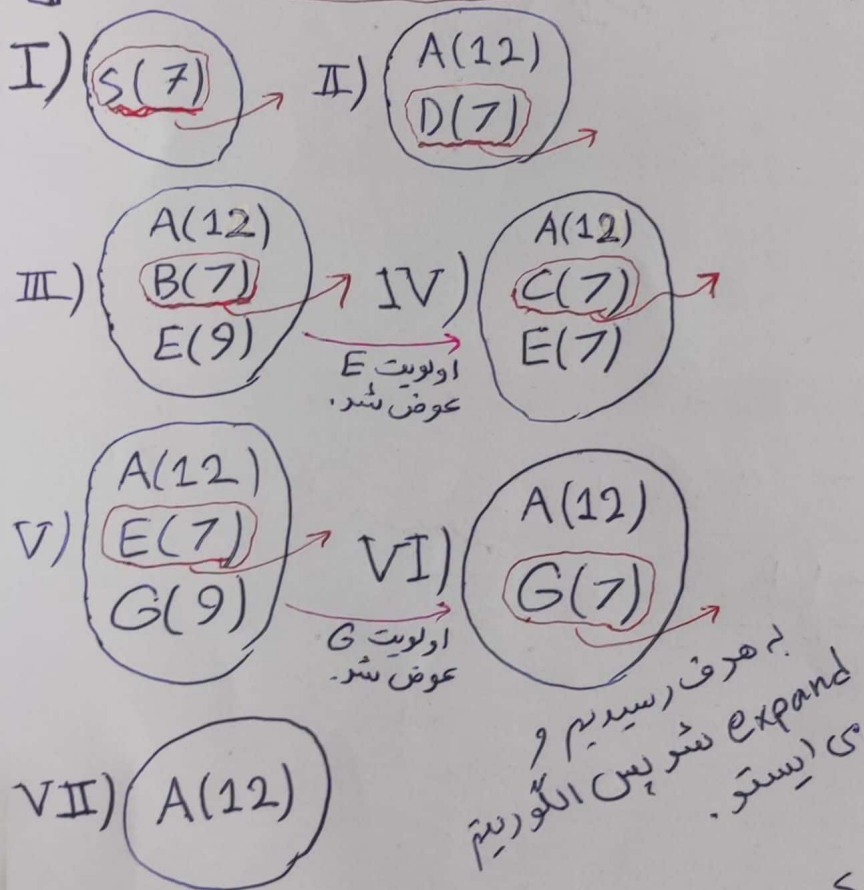 I) S(7)
II) A(12)
D(7)
III) A(12)
B(7)
E(9)
اولویت E
عوض شد.
IV) A(12)
C(7)
E(7)
V) A(12)
E(7)
G(9)
اولویت G
عوض شد.
VI) A(12)
G(7)
به هدف رسیدیم و
expand شد پس الگوریتم
می ایستد.
VII) A(12)